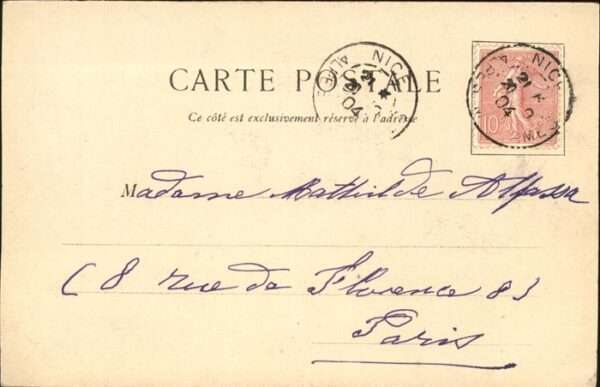 CARTE POSTALE
Ce côté est exclusivement réservé à l'adresse
NICE
21
04
NICE
21
04
10
Madame Mathilde Alfassa
(8 rue de Florence 8)
Paris